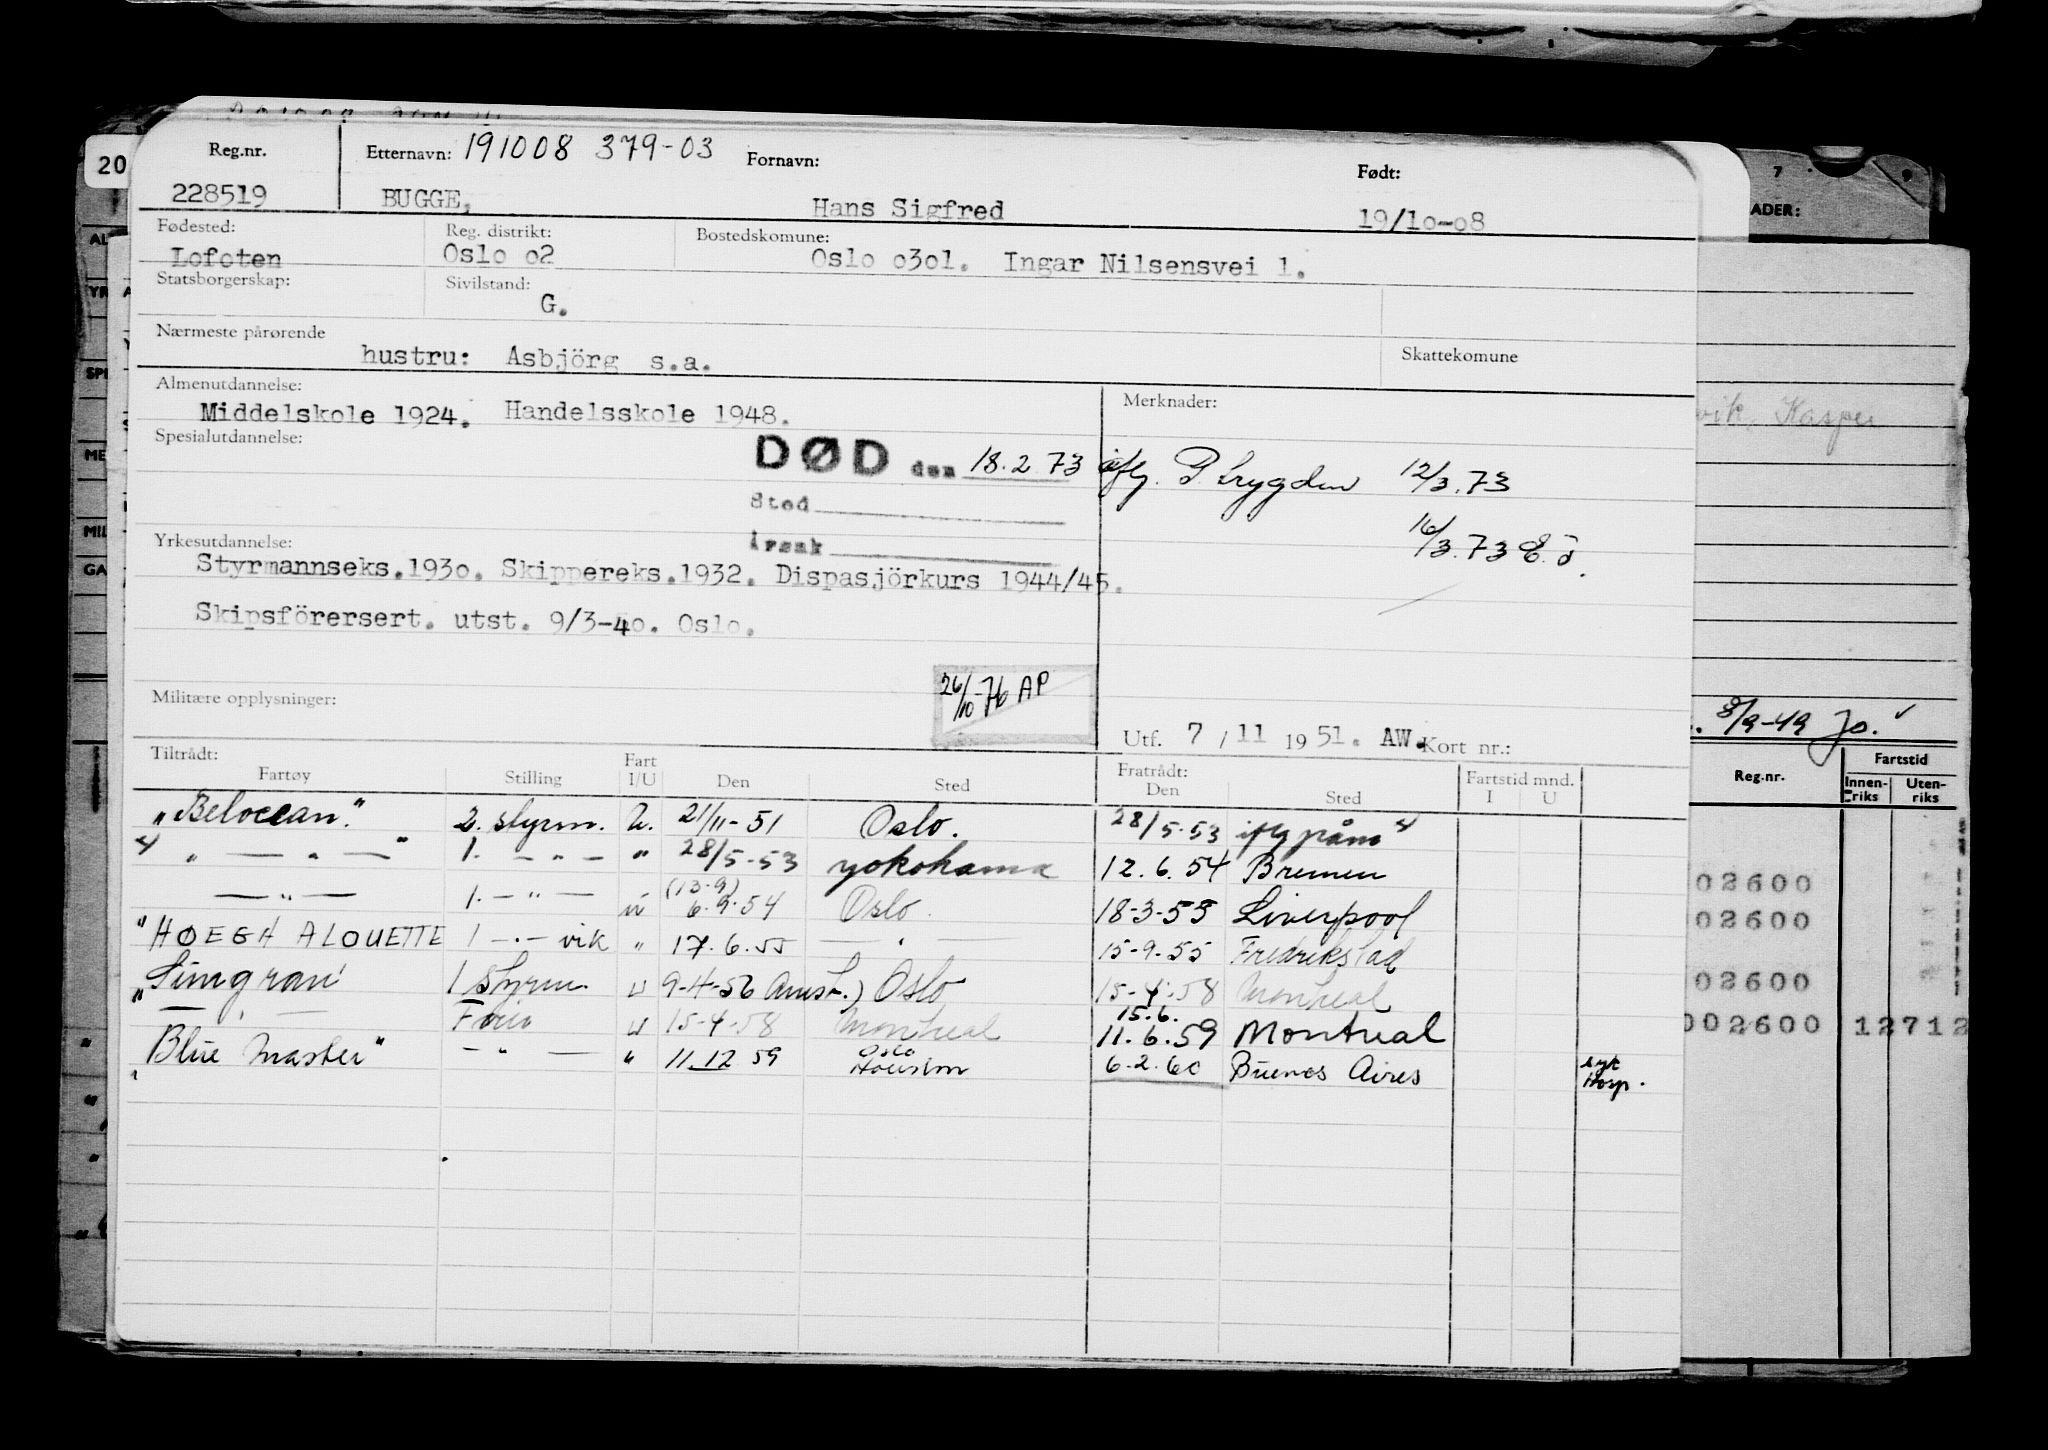 20
Reg.nr. Etternavn: 191008 379-03 Fornavn: Født:
228519 BUGGE, Hans Sigfred 19/10-08
Fødested: Reg. distrikt: Bostedskomune:
Lofoten Oslo o2 Oslo o3ol. Ingar Nilsensvei 1.
Statsborgerskap: Sivilstand:
G.
Nærmeste pårørende Skattekomune
hustru: Asbjörg s.a.
Almenutdannelse: Merknader:
Middelskole 1924. Handelsskole 1948.
Spesialutdannelse:
DØD den 18.2 73 iflg. P. 12/3.73
Sted
Årsak 16/3.73 E.J.
Yrkesutdannelse:
Styrmannseks.193o. Skippereks.1932. Dispasjörkurs 1944/45.
Skipsförersert. utst. 9/3-4o. Oslo.
26/10-76 AP
Militære opplysninger:
Utf. 7 / 11 19 51. AW. Kort nr.:
Tiltrådt: Fratrådt:
Fartøy Stilling Fart I/U Den Sted Den Sted Fartstid mnd. I U
"Belocean." 2. styrm. U. 21/11-51 Oslo. 28/5-53 iflg påm
" — " — " 1. — " — " 28/5-53 Yokohama 12.6.54 Bremen
— " — 1. — " — " (13-9) 6.9.54 Oslo. 18-3-55 Liverpool
"HØEGH ALOUETTE 1 — " — vik " 17.6.55 — " — 15-9-55 Fredrikstad
"Simgran" 1 styrm. U 9-4-56 Amst.) Oslo 15-4-58 Montreal
— " — Fører U 15-4-58 Montreal 15.6. 11.6.59 Montreal
"Blue Master" — " — " 11.12 59 Oslo Houston 6-2.60 Buenos Aires syk Hosp.
7 9
ADER:
vik, Kasper
8/9-49 Jo.
Reg.nr. Fartstid
Innenriks Utenriks
02600
02600
02600
002600 12712